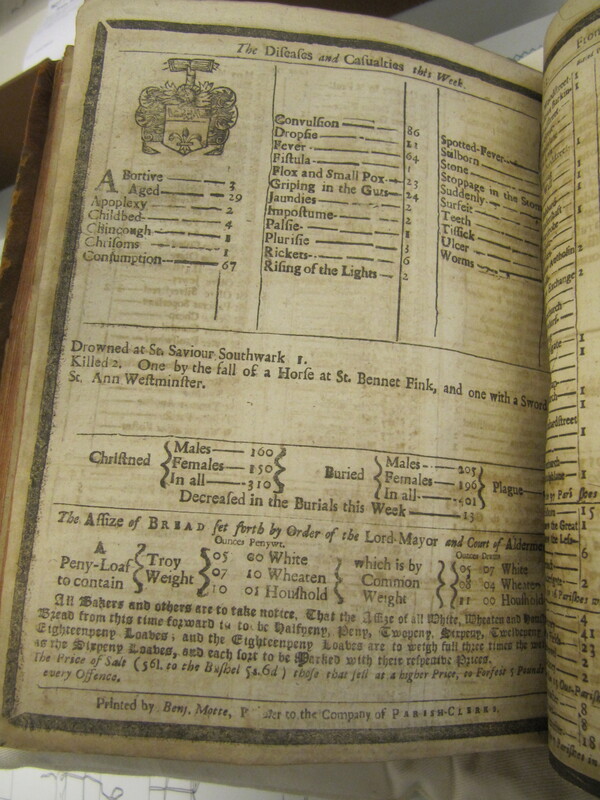 The Diseases and Casualties this Week.
ABortive — 3
Aged — 29
Apoplexy — 2
Childbed — 4
Chincough — 1
Chrisoms — 1
Consumption — 67
Convulsion — 86
Dropsie — 11
Fever — 64
Fistula — 1
Flox and Small Pox — 23
Griping in the Guts — 24
Jaundies — 2
Impostume — 2
Palsie — 1
Plurisie — 3
Rickets — 6
Rising of the Lights — 2
Spotted-Fever
Stilborn
Stone
Stoppage in the Stom
Suddenly
Surfeit
Teeth
Tissick
Ulcer
Worms
Drowned at St. Saviour Southwark 1.
Killed 2. One by the fall of a Horse at St. Bennet Fink, and one with a Sword
St. Ann Westminster.
Christned Males — 160 Females — 150 In all — 310
Buried Males — 205 Females — 196 In all — 401 Plague
Decreased in the Burials this Week — 13
The Assize of BREAD set forth by Order of the Lord Mayor and Court of Aldermen
Ounces Penywt. Ounces Drams
A Peny-Loaf to contain Troy Weight
05 00 White
07 10 Wheaten
10 01 Houshold
which is by Common Weight
05 07 White
08 04 Wheaten
11 00 Houshold
All Bakers and others are to take notice, That the Assize of all White, Wheaten and
Bread from this time forward is to be Halfpeny, Peny, Twopeny, Sixpeny, Twelvepeny
Eighteenpeny Loaves; and the Eighteenpeny Loaves are to weigh full three times the
as the Sixpeny Loaves, and each sort to be Marked with their respective Prices.
The Price of Salt (56l. to the Bushel 5s.6d) those that sell at a higher Price, to Forfeit 5 Pounds
every Offence.
Printed by Benj. Motte, P to the Company of PARISH-CLERKS.